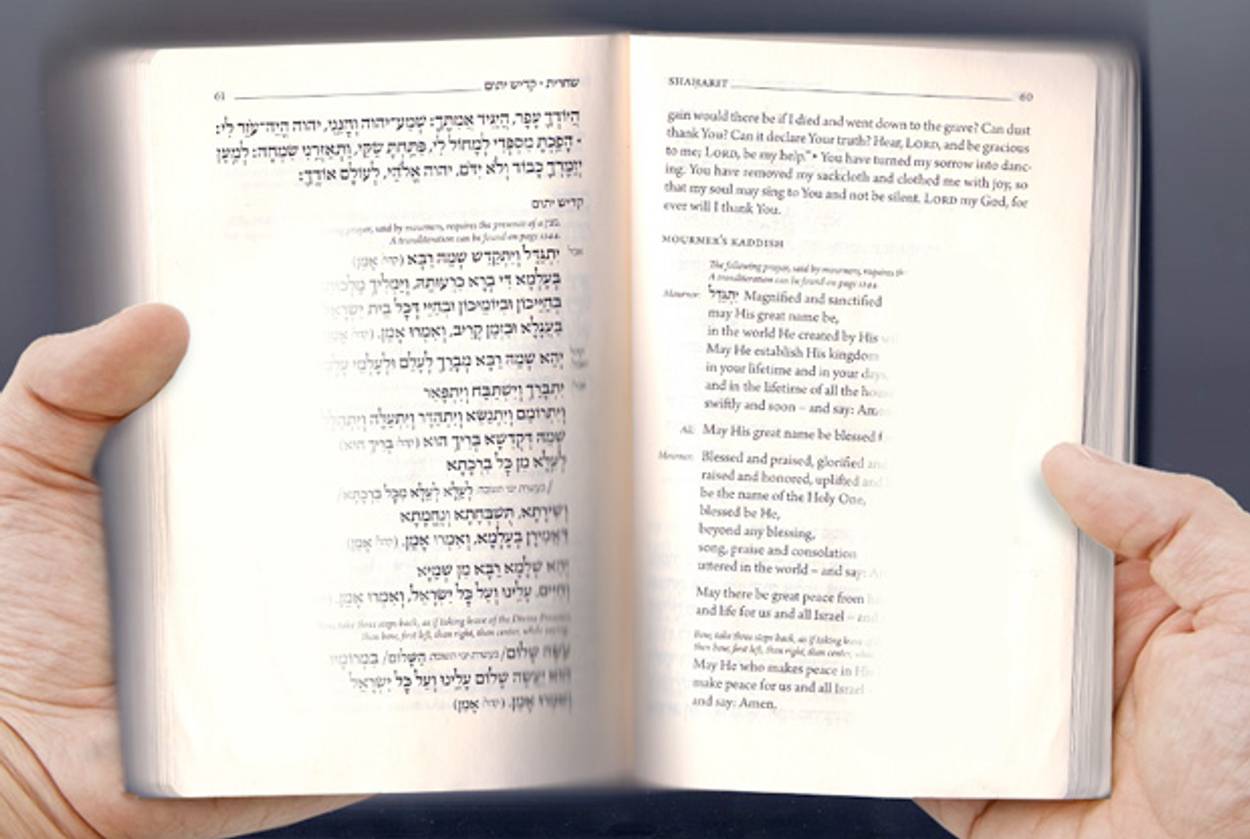 SHAHARIT 60
gain would there be if I died and went down to the grave? Can dust
thank You? Can it declare Your truth? Hear, LORD, and be gracious
to me; LORD, be my help." • You have turned my sorrow into danc-
ing. You have removed my sackcloth and clothed me with joy, so
that my soul may sing to You and not be silent. LORD my God, for
ever will I thank You.
MOURNER'S KADDISH
The following prayer, said by mourners, requires th
A transliteration can be found on page 1244.
Mourner: יִתְגַּדַּל Magnified and sanctified
may His great name be,
in the world He created by His
May He establish His kingdom
in your lifetime and in your days,
and in the lifetime of all the house
swiftly and soon – and say: Amen
All: May His great name be blessed f
Mourner: Blessed and praised, glorified and
raised and honored, uplifted and
be the name of the Holy One,
blessed be He,
beyond any blessing,
song, praise and consolation
uttered in the world – and say: A
May there be great peace from
and life for us and all Israel – and
Bow, take three steps back, as if taking leave of
then bow, first left, then right, then center, while
May He who makes peace in His
make peace for us and all Israel
and say: Amen.
שחרית • קדיש יתום 61
הֲיוֹדְךָ עָפָר, הֲיַגִּיד אֲמִתֶּךָ: שְׁמַע־יהוה וְחָנֵּנִי, יהוה הֱיֵה־עֹזֵר לִי:
• הָפַכְתָּ מִסְפְּדִי לְמָחוֹל לִי, פִּתַּחְתָּ שַׂקִּי, וַתְּאַזְּרֵנִי שִׂמְחָה: לְמַעַן
יְזַמֶּרְךָ כָבוֹד וְלֹא יִדֹּם, יהוה אֱלֹהַי, לְעוֹלָם אוֹדֶךָּ:
קדיש יתום
prayer, said by mourners, requires the presence of a מנין.
A transliteration can be found on page 1244.
אבל: יִתְגַּדַּל וְיִתְקַדַּשׁ שְׁמֵהּ רַבָּא (קהל: אָמֵן)
בְּעָלְמָא דִּי בְרָא כִרְעוּתֵהּ, וְיַמְלִיךְ מַלְכוּתֵ
בְּחַיֵּיכוֹן וּבְיוֹמֵיכוֹן וּבְחַיֵּי דְּכָל בֵּית יִשְׂרָאֵ
בַּעֲגָלָא וּבִזְמַן קָרִיב, וְאִמְרוּ אָמֵן. (קהל: אָמֵן
יְהֵא שְׁמֵהּ רַבָּא מְבָרַךְ לְעָלַם וּלְעָלְמֵי עָלְ
יִתְבָּרַךְ וְיִשְׁתַּבַּח וְיִתְפָּאַר
וְיִתְרוֹמַם וְיִתְנַשֵּׂא וְיִתְהַדָּר וְיִתְעַלֶּה וְיִתְהַלָּל
שְׁמֵהּ דְּקֻדְשָׁא בְּרִיךְ הוּא (קהל: בְּרִיךְ הוּא)
לְעֵלָּא מִן כָּל בִּרְכָתָא
/בעשרת ימי תשובה: לְעֵלָּא לְעֵלָּא מִכָּל בִּרְכָתָא/
וְשִׁירָתָא, תֻּשְׁבְּחָתָא וְנֶחֱמָתָא
דַּאֲמִירָן בְּעָלְמָא, וְאִמְרוּ אָמֵן. (קהל: אָמֵן)
יְהֵא שְׁלָמָא רַבָּא מִן שְׁמַיָּא
וְחַיִּים, עָלֵינוּ וְעַל כָּל יִשְׂרָאֵל, וְאִמְרוּ אָמֵן.
Bow, take three steps back, as if taking leave of the Divine Presence
then bow, first left, then right, then center, while saying:
עֹשֶׂה שָׁלוֹם/ בעשרת ימי תשובה: הַשָּׁלוֹם/ בִּמְרוֹמָיו
הוּא יַעֲשֶׂה שָׁלוֹם עָלֵינוּ וְעַל כָּל יִשְׂרָאֵל
וְאִמְרוּ אָמֵן. (קהל: אָמֵן)